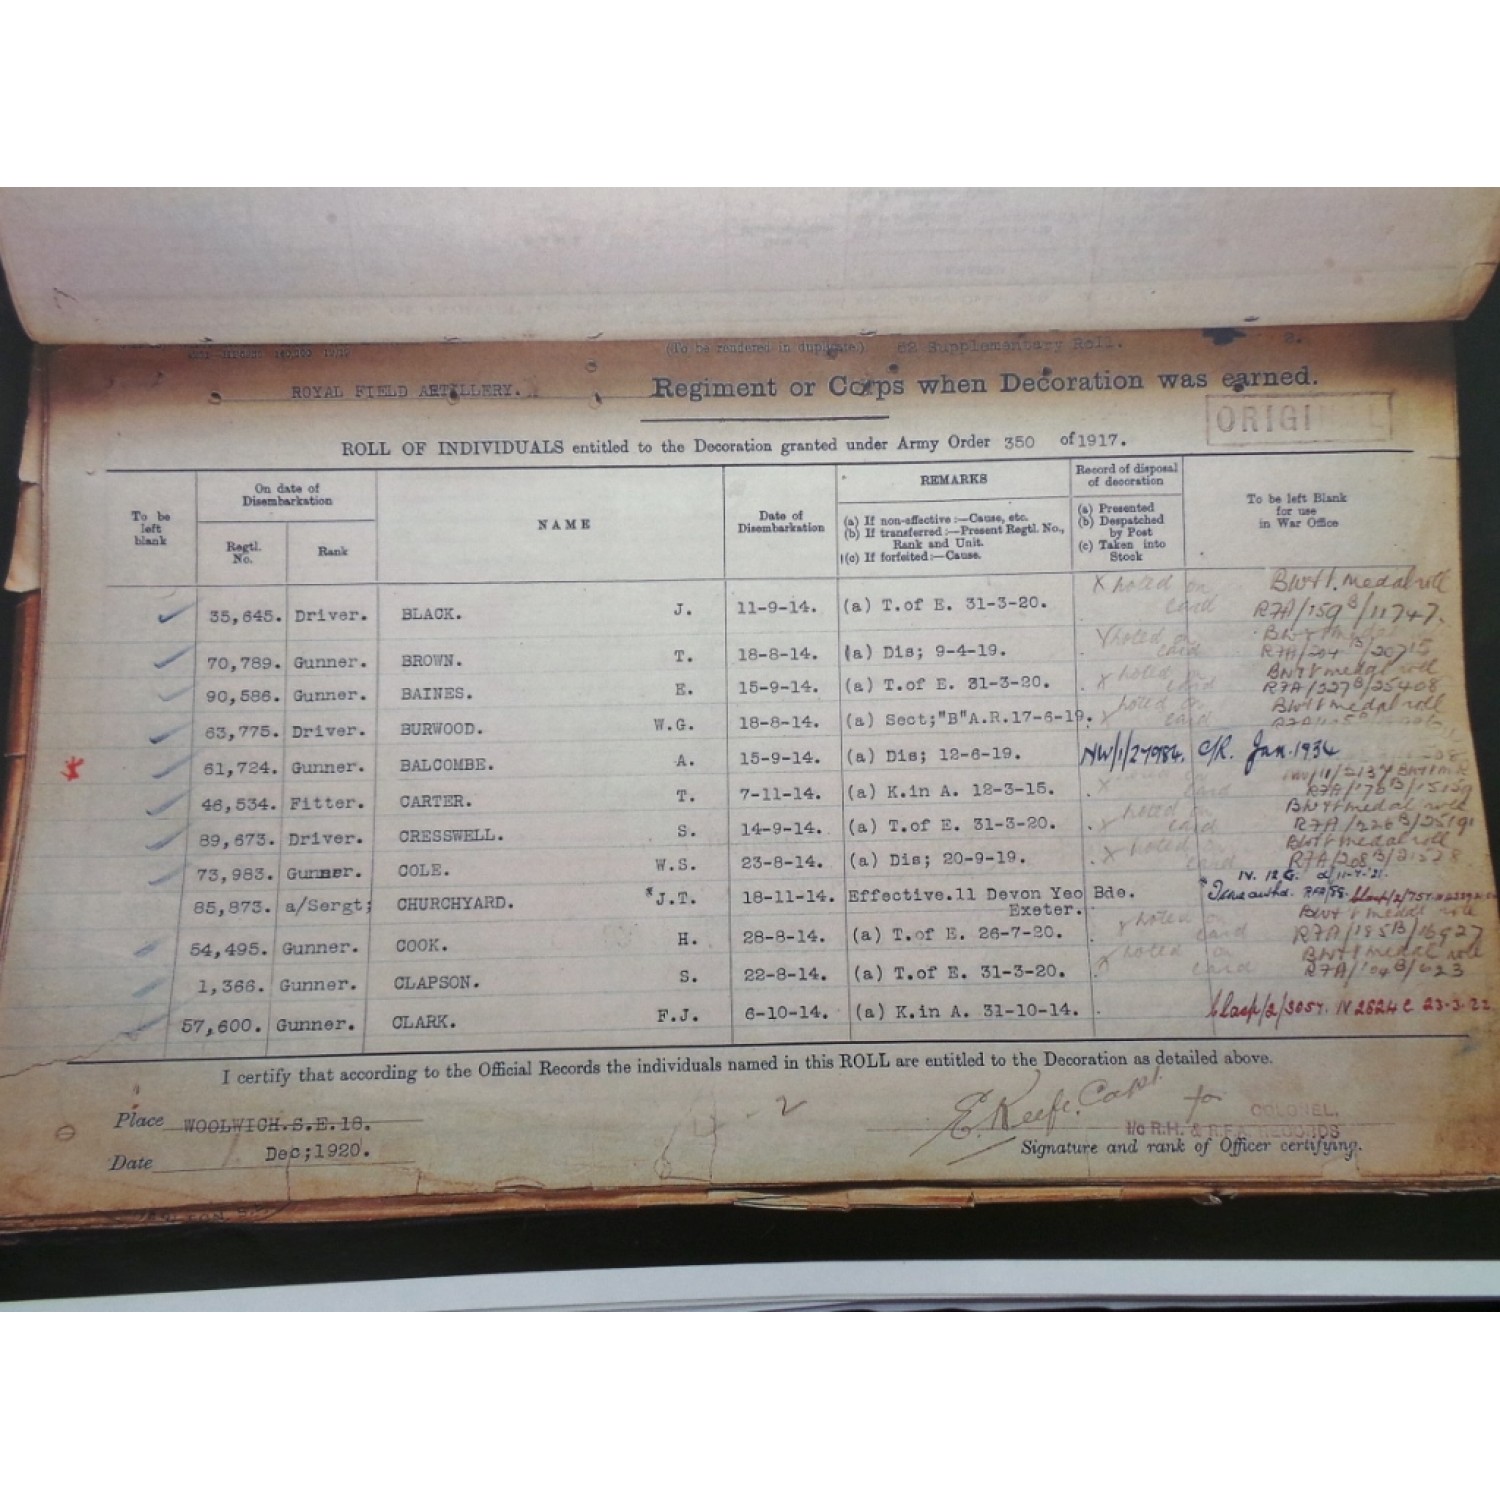 (To be rendered in duplicate.) 62 Supplementary Roll. 2.
ROYAL FIELD ARTILLERY. Regiment or Corps when Decoration was earned.
ORIGINAL
ROLL OF INDIVIDUALS entitled to the Decoration granted under Army Order 350 of 1917.
To be left blank
On date of Disembarkation
Regtl. No.
Rank
NAME
Date of Disembarkation
REMARKS
(a) If non-effective:—Cause, etc.
(b) If transferred:—Present Regtl. No., Rank and Unit.
(c) If forfeited:—Cause.
Record of disposal of decoration
(a) Presented
(b) Despatched by Post
(c) Taken into Stock
To be left Blank for use in War Office
35,645. Driver. BLACK. J. 11-9-14. (a) T.of E. 31-3-20. X noted on card BW&V. medal roll RFA/159B/11747.
70,789. Gunner. BROWN. T. 18-8-14. (a) Dis; 9-4-19. X noted on card BW&V medal RFA/204B/20715
90,586. Gunner. BAINES. E. 15-9-14. (a) T.of E. 31-3-20. X noted on card BW&V medal roll RFA/227B/25408
63,775. Driver. BURWOOD. W.G. 18-8-14. (a) Sect;"B"A.R.17-6-19. X noted on card BW&V medal roll
61,724. Gunner. BALCOMBE. A. 15-9-14. (a) Dis; 12-6-19. NW/1/27984. C/R. Jan. 1934
46,534. Fitter. CARTER. T. 7-11-14. (a) K.in A. 12-3-15. X noted on card RFA/178B/15139
89,673. Driver. CRESSWELL. S. 14-9-14. (a) T.of E. 31-3-20. X noted on card BW&V medal roll RFA/226B/25191
73,983. Gunner. COLE. W.S. 23-8-14. (a) Dis; 20-9-19. X noted on card BW&V medal roll RFA/208B/21528
85,873. a/Sergt; CHURCHYARD. *J.T. 18-11-14. Effective.11 Devon Yeo Bde. Exeter.
54,495. Gunner. COOK. H. 28-8-14. (a) T.of E. 26-7-20. X noted on card BW&V medal roll RFA/185B/16927
1,366. Gunner. CLAPSON. S. 22-8-14. (a) T.of E. 31-3-20. X noted on card BW&V medal roll RFA/104B/623
57,600. Gunner. CLARK. F.J. 6-10-14. (a) K.in A. 31-10-14. Clasp/2/3057. IV 2624 C 23-3-22
I certify that according to the Official Records the individuals named in this ROLL are entitled to the Decoration as detailed above.
Place WOOLWICH.S.E.18.
Date Dec;1920.
2
E. Keefe. Capt. for COLONEL.
I/c R.H. & R.F.A. RECORDS
Signature and rank of Officer certifying.